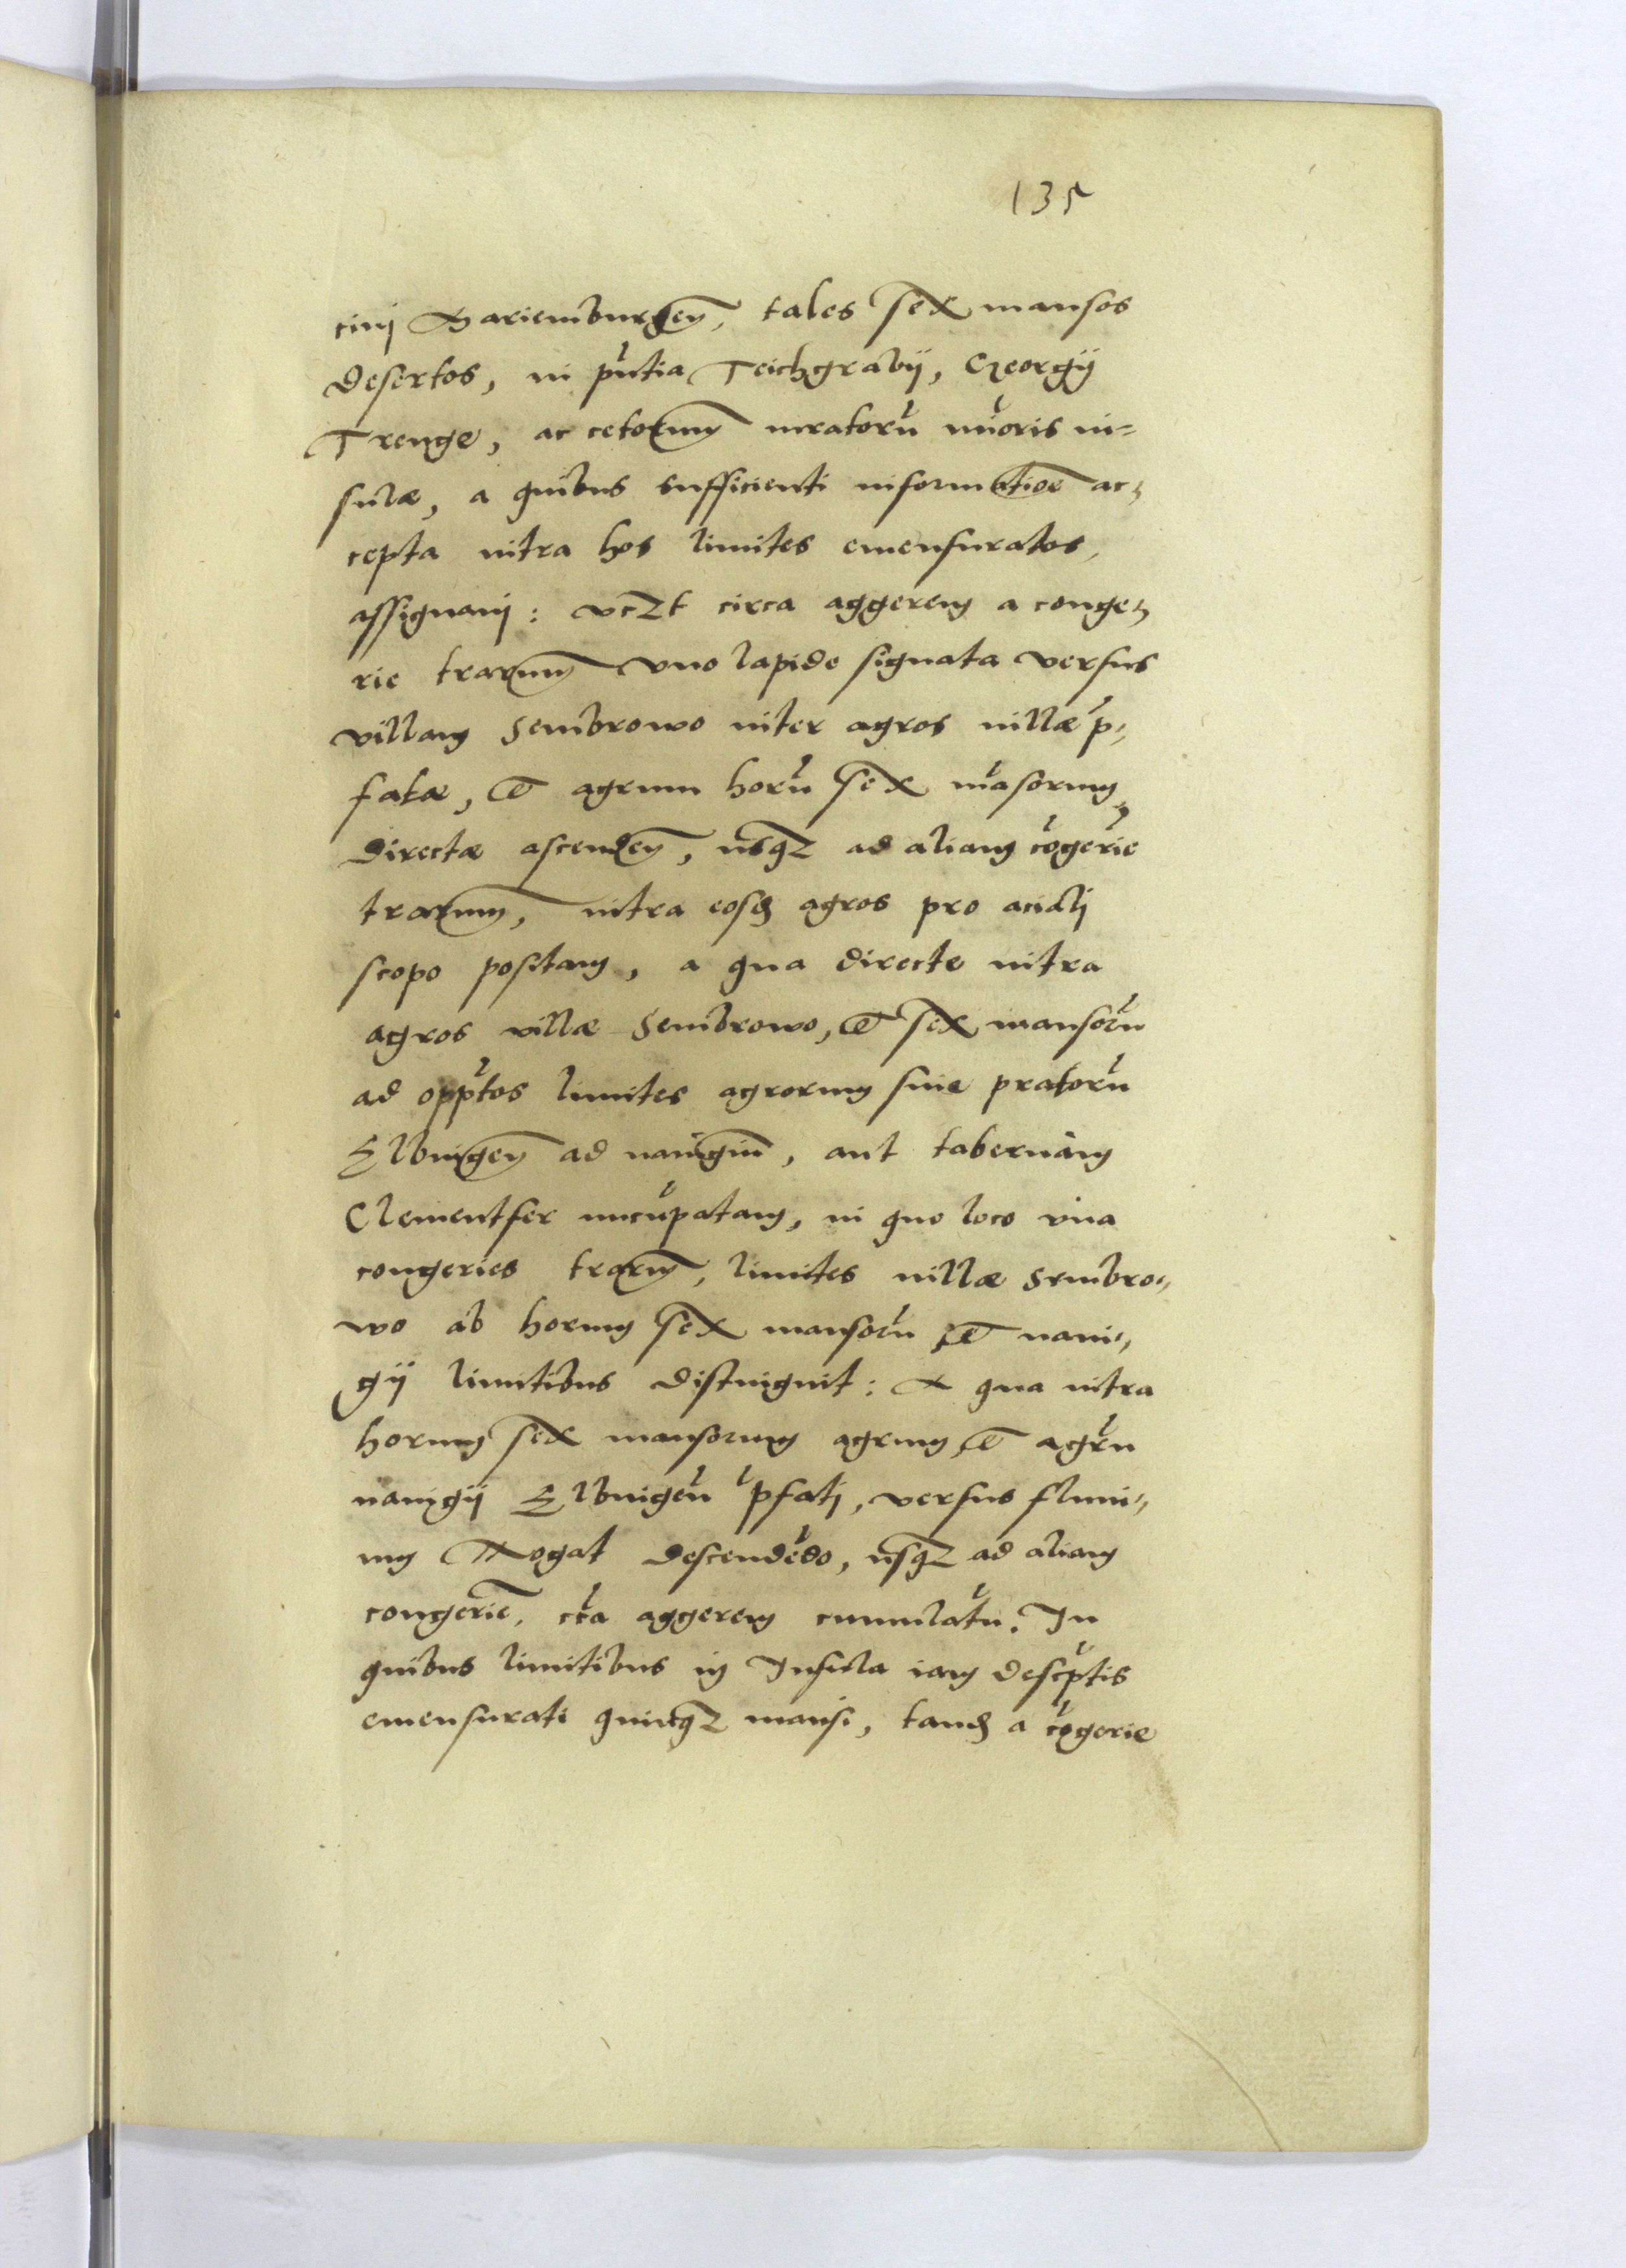 135
cinj Mariemburgen̄, tales sex mansos
desertos, in pn̄tia Teichgrabij, Georgij
Trenge, ac cetorum iuratorū mīoris in=
sulæ, a quibus sufficienti informatioē ac,,
cepta intra hos limites emensuratos,
assignavj: vczt circa aggerem a conge,,
rie trarum vno lapide signata versus
villam Sembrowo inter agros villæ p̄,,
fatæ, et agrum horū sex māsorum,
directæ ascenden̄, usqz ad aliam cōgeriē
trarum, intra eosd agros pro acialj
scopo positam, a qua directe intra
agros villæ Sembrowo, et sex mansorū
ad opp̄tos limites agrorum siue pratorū
Elbingen̄ ad nauigiū, aut tabernam
Clementfer nūcupatam, in quo loco vna
congeries trarum, limites villæ Sembro,,
wo ab horum sex mansorū et naui,,
gij limitibus distinguit: A qua intra
horum sex mansorum agrum, et agrū
nauigij Elbingen̄ p̄fatj, versus fluui,,
um Nogat descendēdo, usqz ad aliam
congeriē, cca aggerem cumulatū. In
quibus limitibus in Insula iam descptis
emensurati quinqz mansi, tand a cōgerie